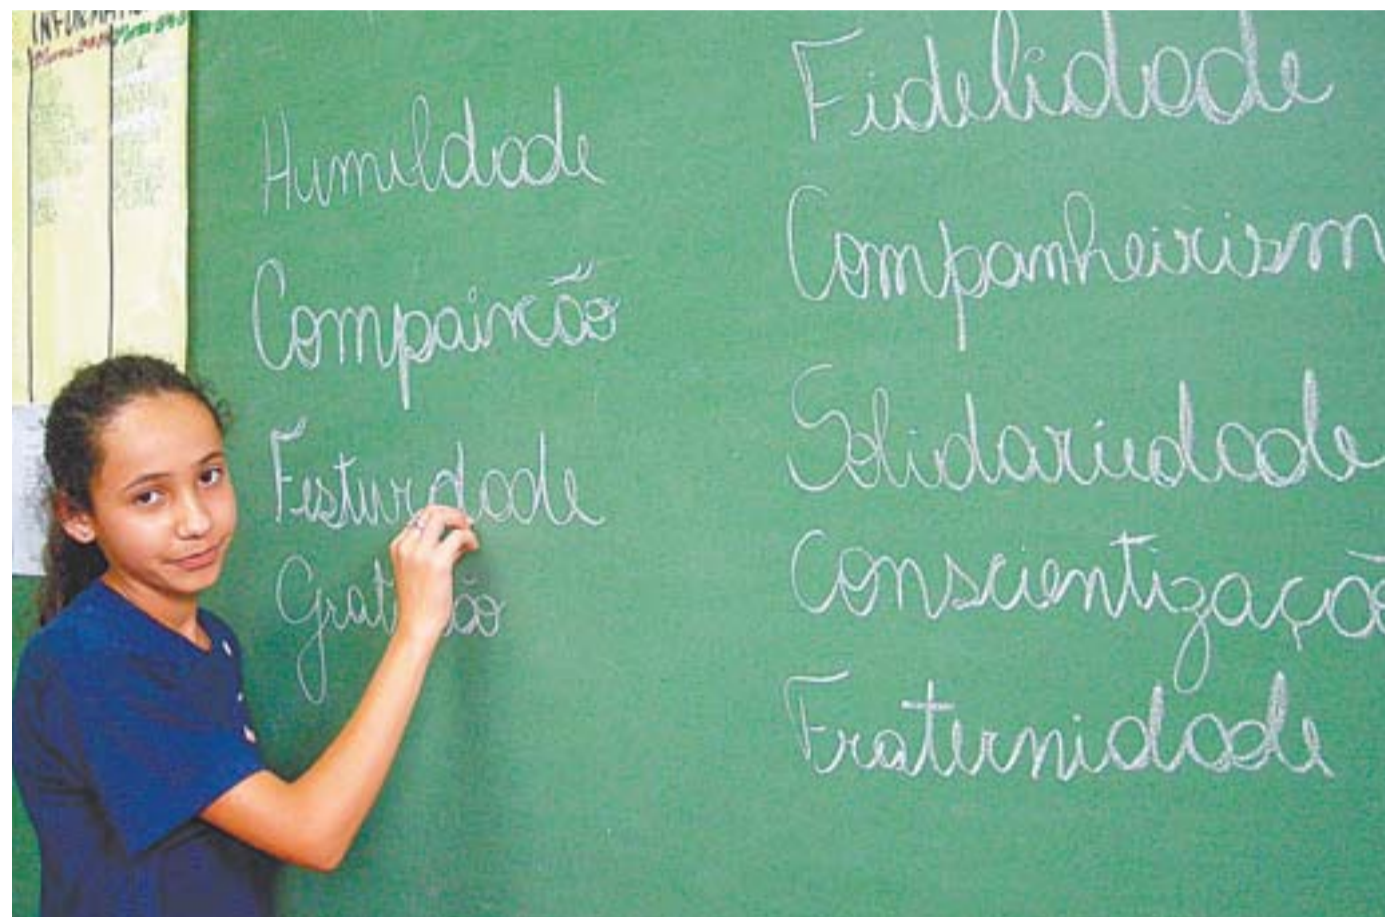 Humildade
Compaixão
Grat ão
Fidelidade
Companheirism
Solidariedade
Conscientização
Fraternidade